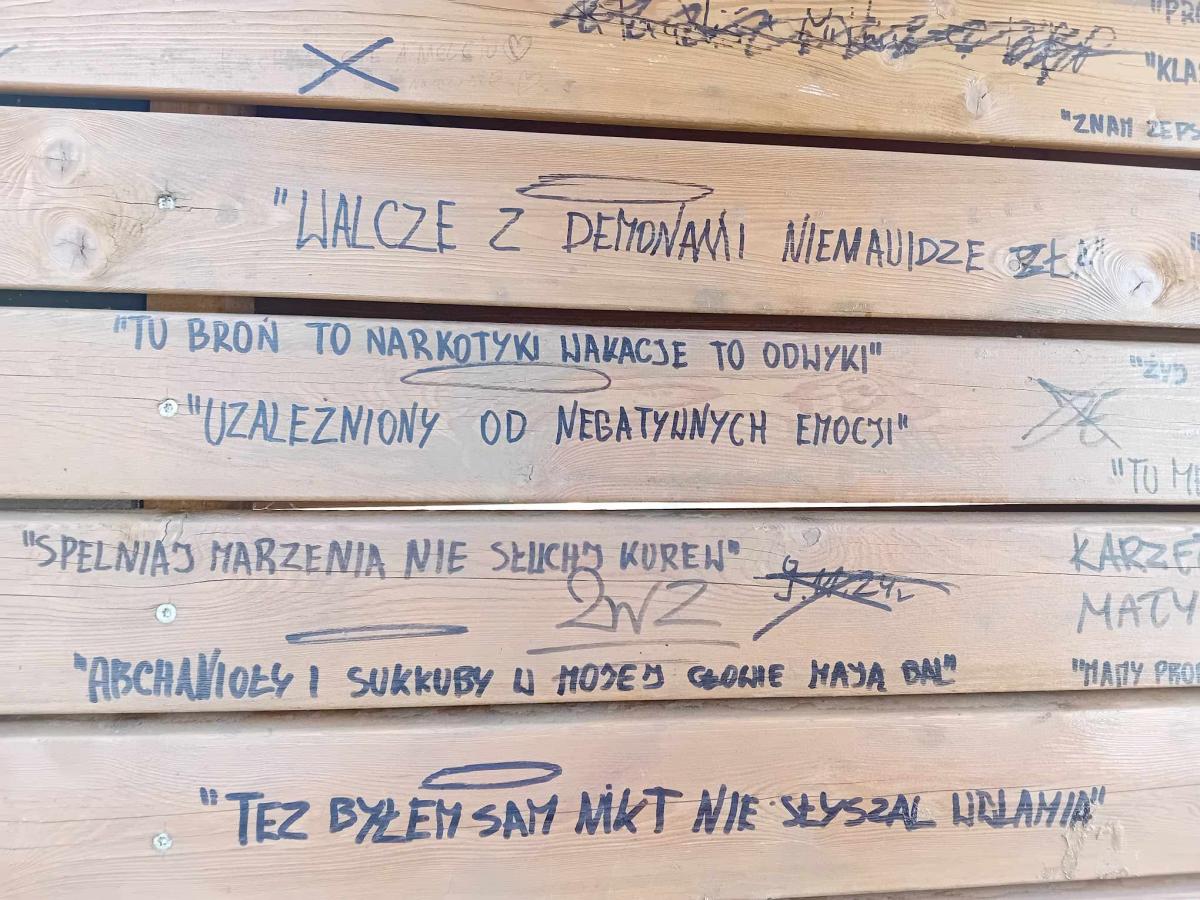 "PR
"KLA
"ZNAM ZEPS
"WALCZE Z DEMONAMI NIENAUIDZE ZŁA"
"TU BROŃ TO NARKOTYKI WAKACJE TO ODWYKI"
"ŻYJ
"UZALEZNIONY OD NEGATYWNYCH EMOCJI"
"TU M
"SPELNIAJ MARZENIA NIE SŁUCHJ KUREW"
KARZE
2W2
MATY
"ARCHANIOŁY I SUKKUBY W MOJEJ GŁOWIE MAJĄ BAL"
"MAMY PRO
"TEZ BYŁEM SAM NIKT NIE SŁYSZAL WOLANIA"